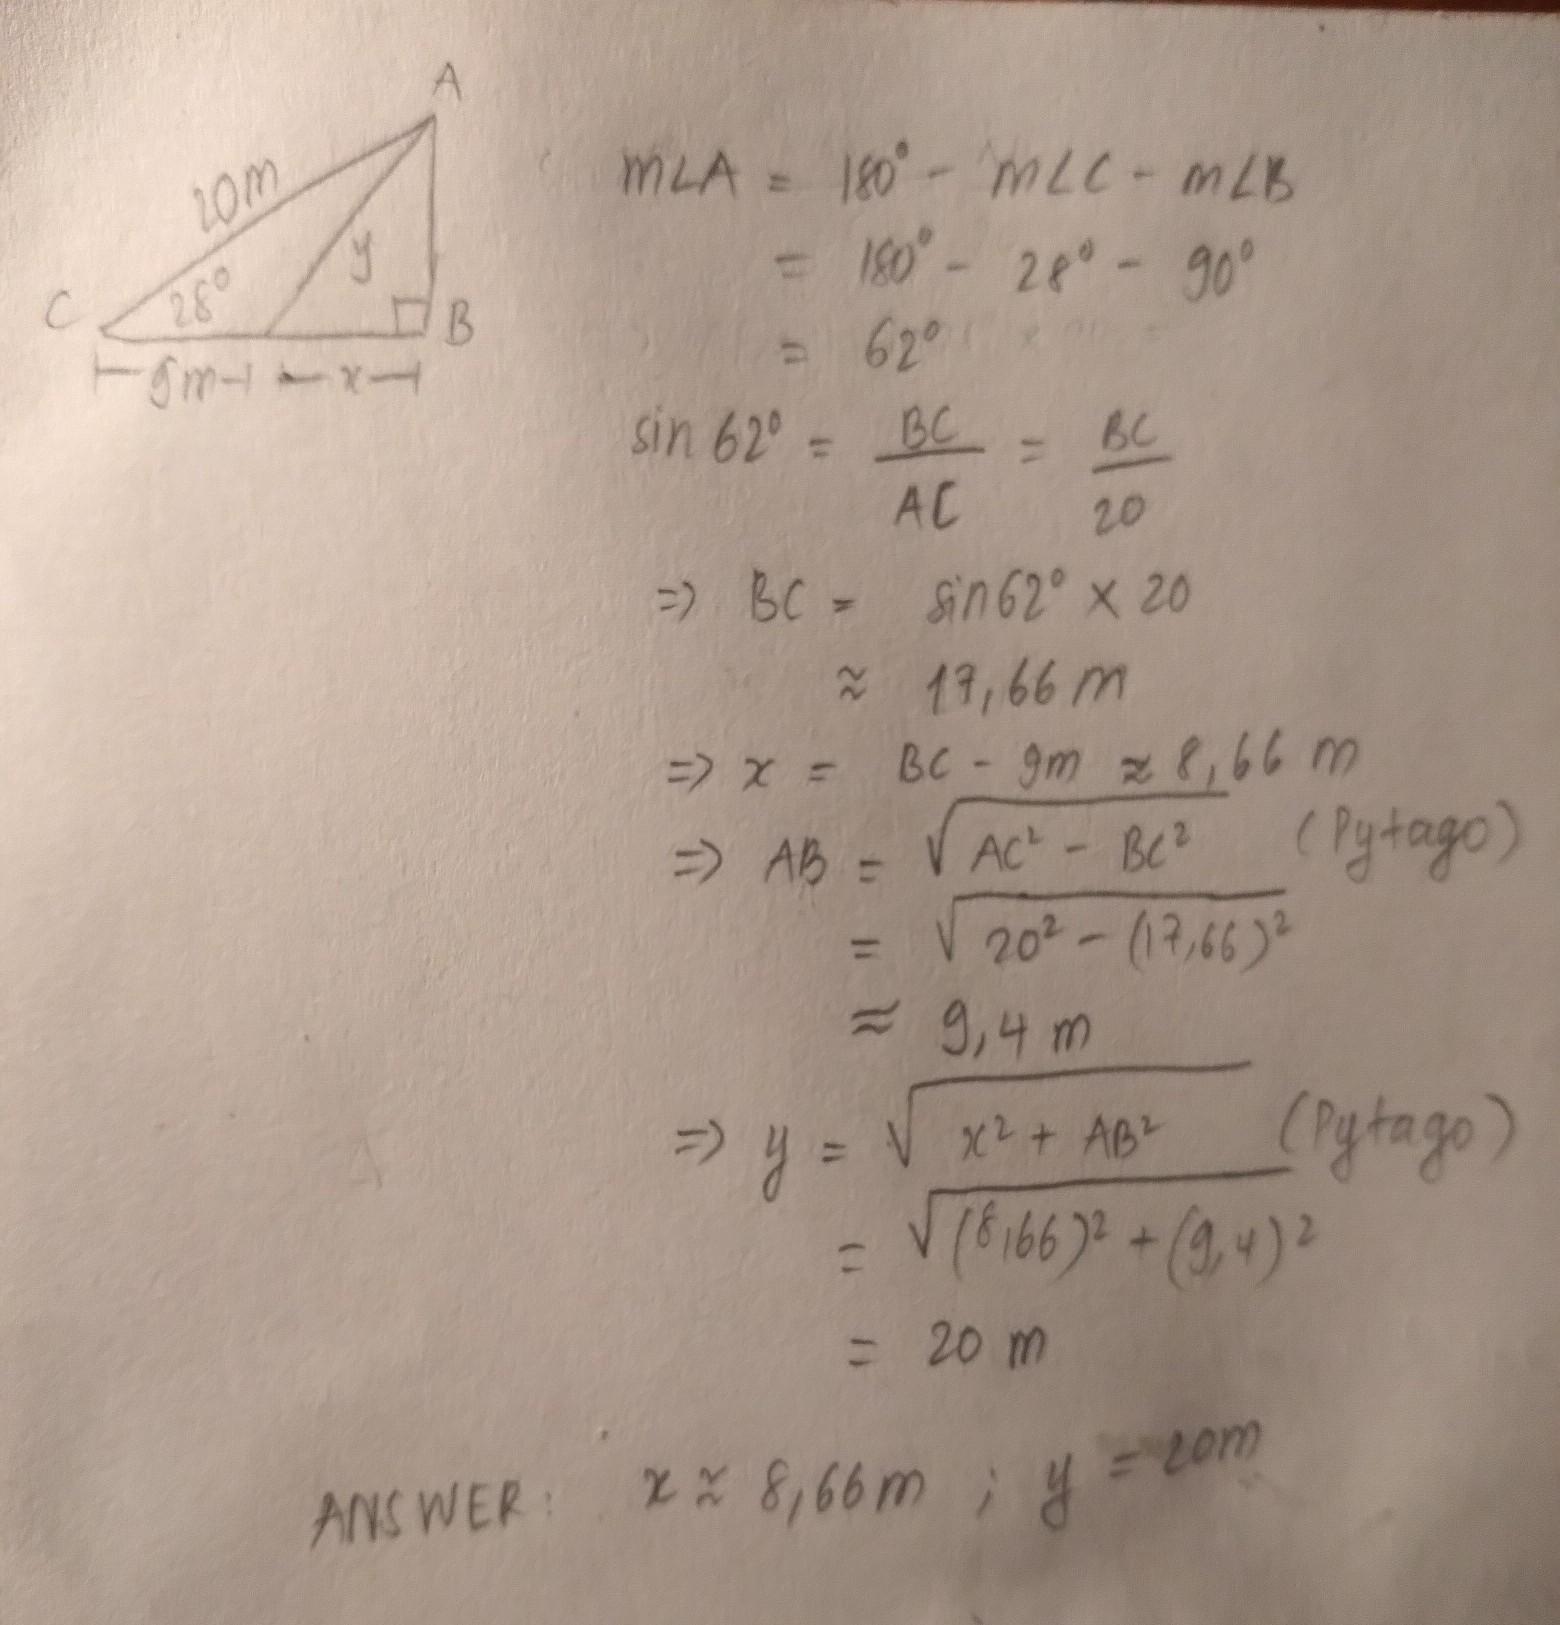 A
20m
y
28°
C
B
9m
x
m∠A = 180° - m∠C - m∠B
= 180° - 28° - 90°
= 62°
sin 62° = BC/AC = BC/20
=> BC = sin62° × 20
≈ 17,66 m
=> x = BC - 9m ≈ 8,66 m
=> AB = √AC² - BC² (Pytago)
= √20² - (17,66)²
≈ 9,4 m
=> y = √x² + AB² (Pytago)
= √(8,66)² + (9,4)²
= 20 m
ANSWER: x ≈ 8,66m ; y = 20m